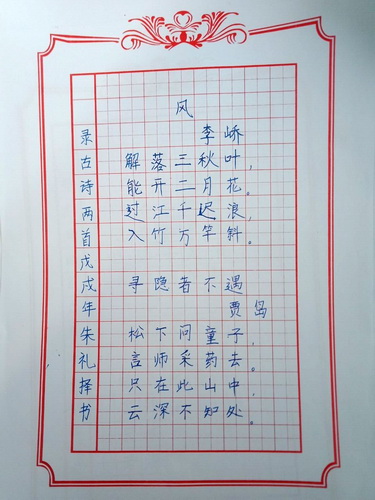 风
李峤
解落三秋叶，
能开二月花。
过江千迟浪，
入竹万竿斜。
寻隐者不遇
贾岛
松下问童子，
言师采药去。
只在此山中，
云深不知处。
录古诗两首戊戌年朱礼择书